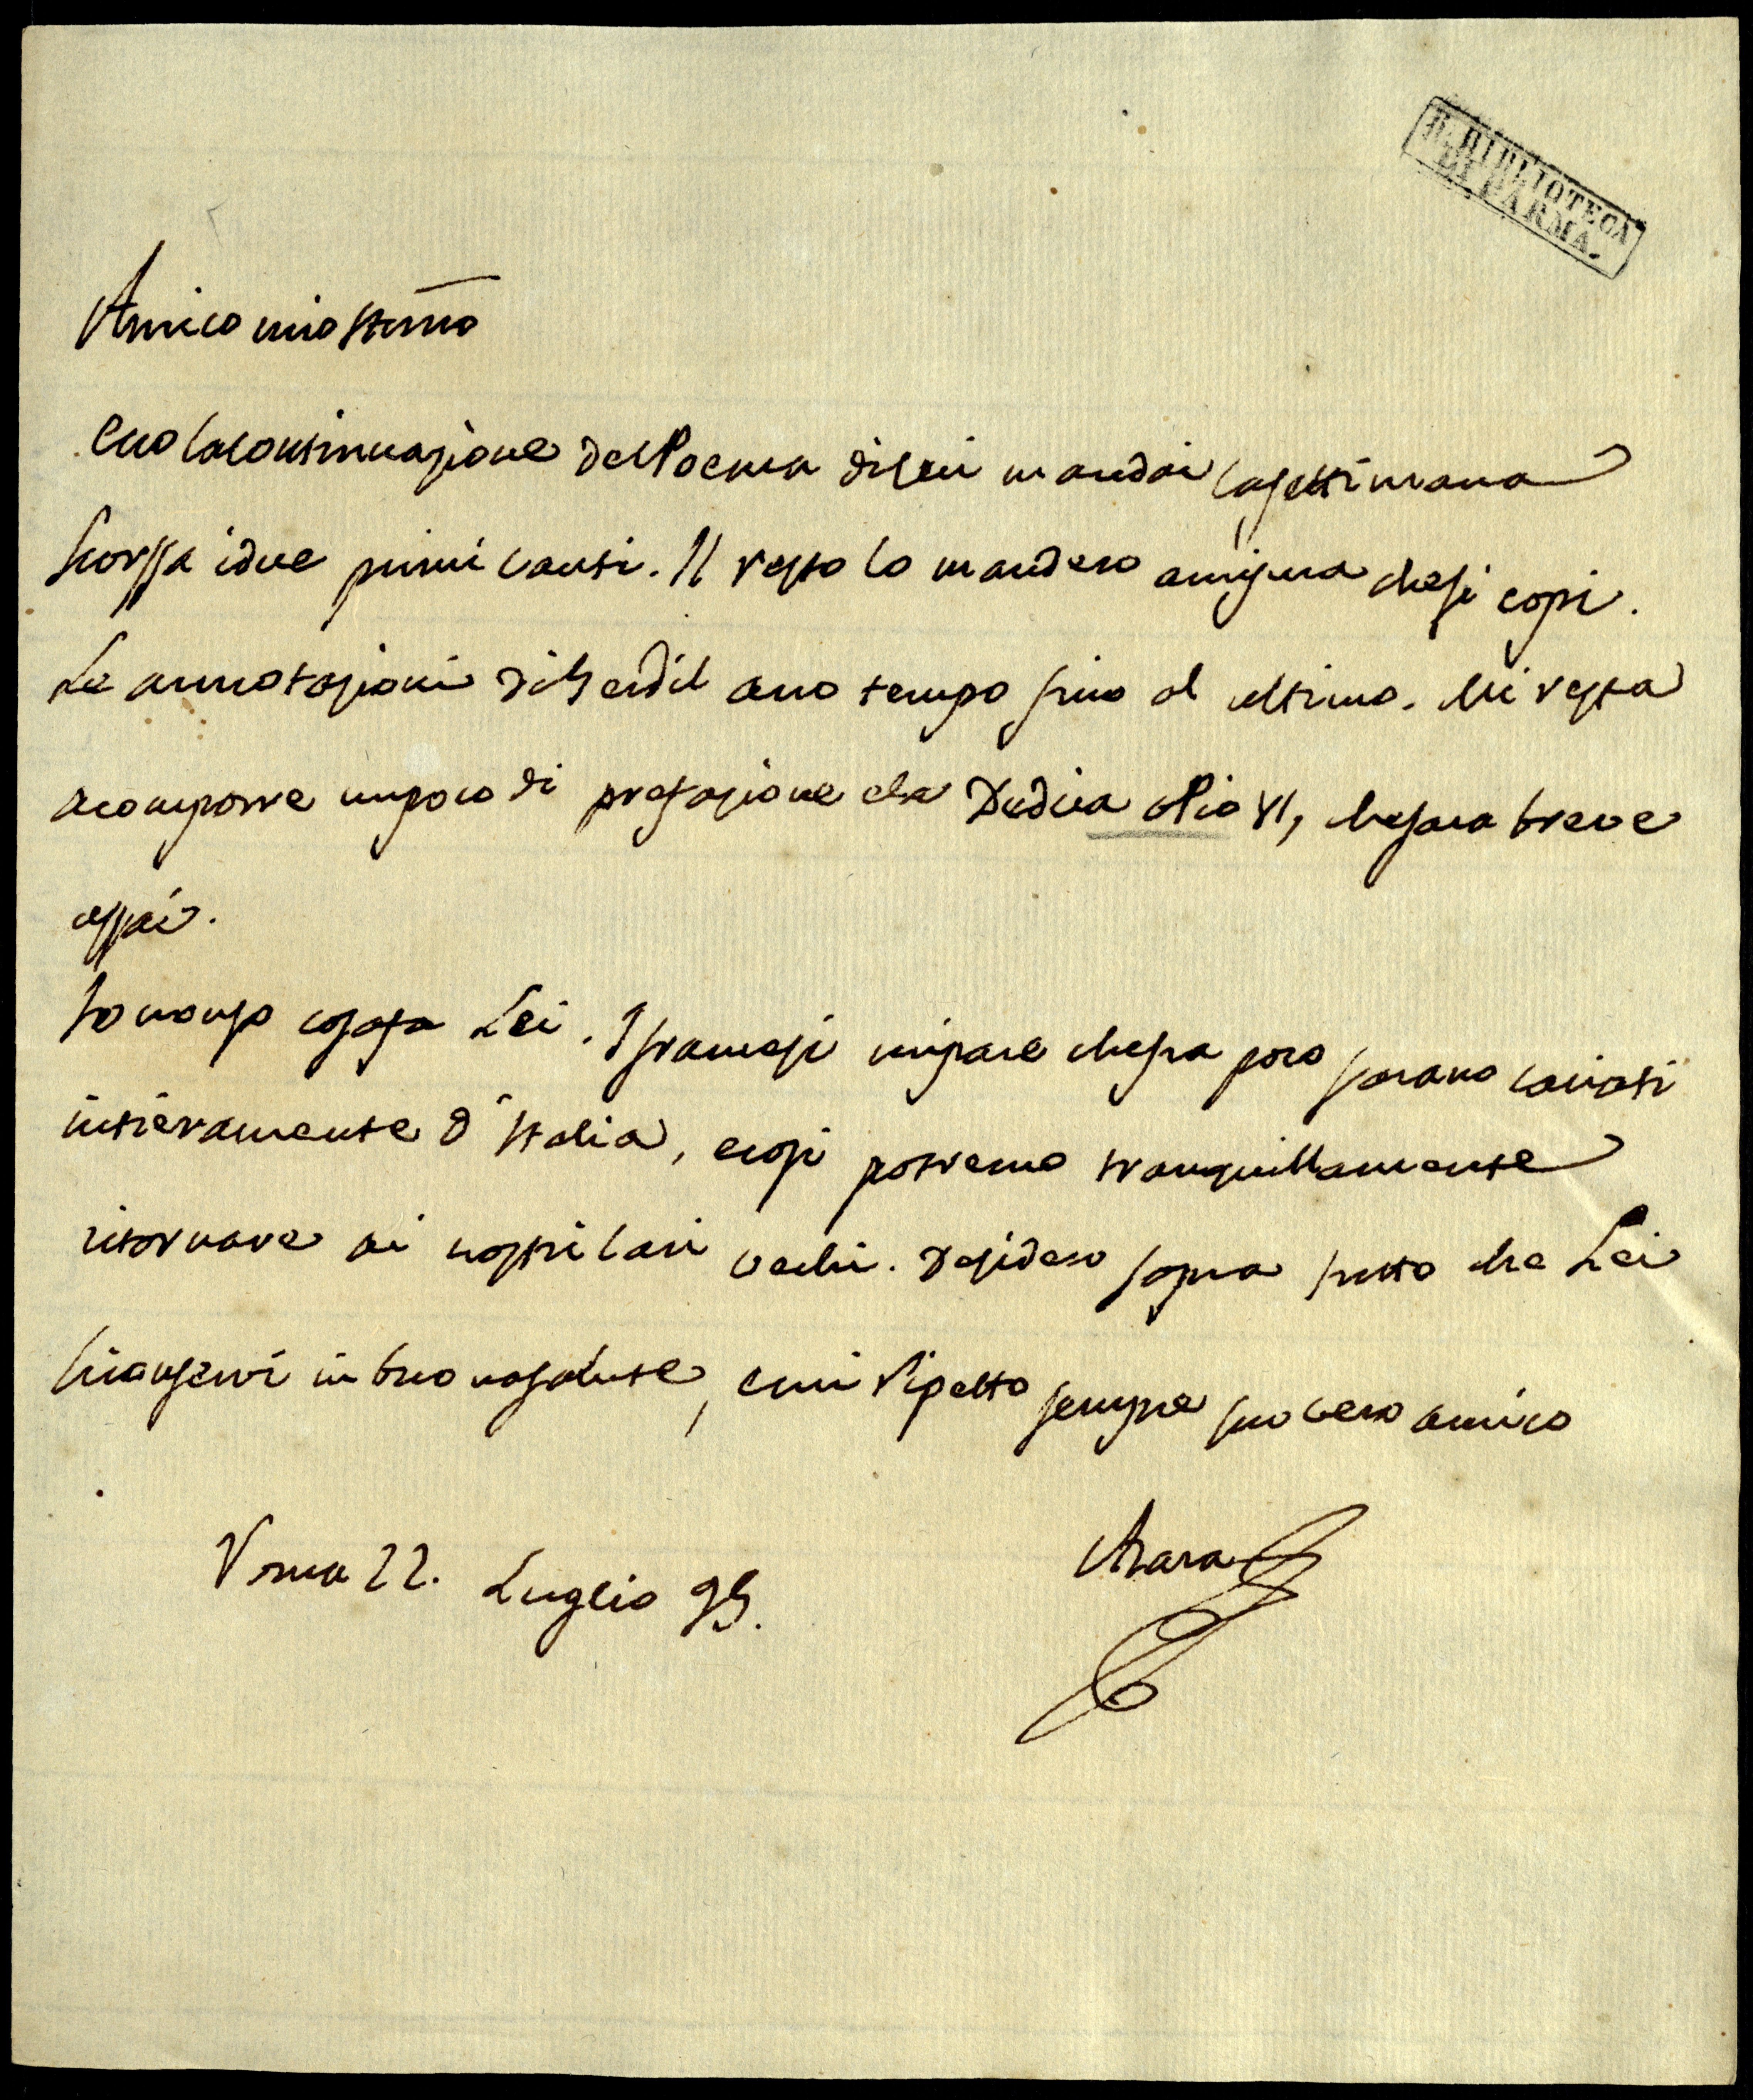 R. BIBLIOTECA
DI PARMA.
Amico mio stimo
Ecco la continuazione del Poema di cui mandai la settimana
scorssa i due primi canti. Il resto lo mandero amisura che si copi.
Le annotazioni di Gerdil ano tempo fino al ultimo. Mi resta
a comporre un poco di prefazione e la Dedica a Pio VI, che sara breve
assai.
So come sta Lei. I francesi mi pare che fra poco sarano caciati
intieramente d'Italia, e cosi potremo tranquillamente
ritornare ai nostri lari vechi. Desidero sopra tutto che Lei
si conservi in buona salute, e mi ripetto sempre suo vero amico
Roma 22. Luglio 95.
Azara